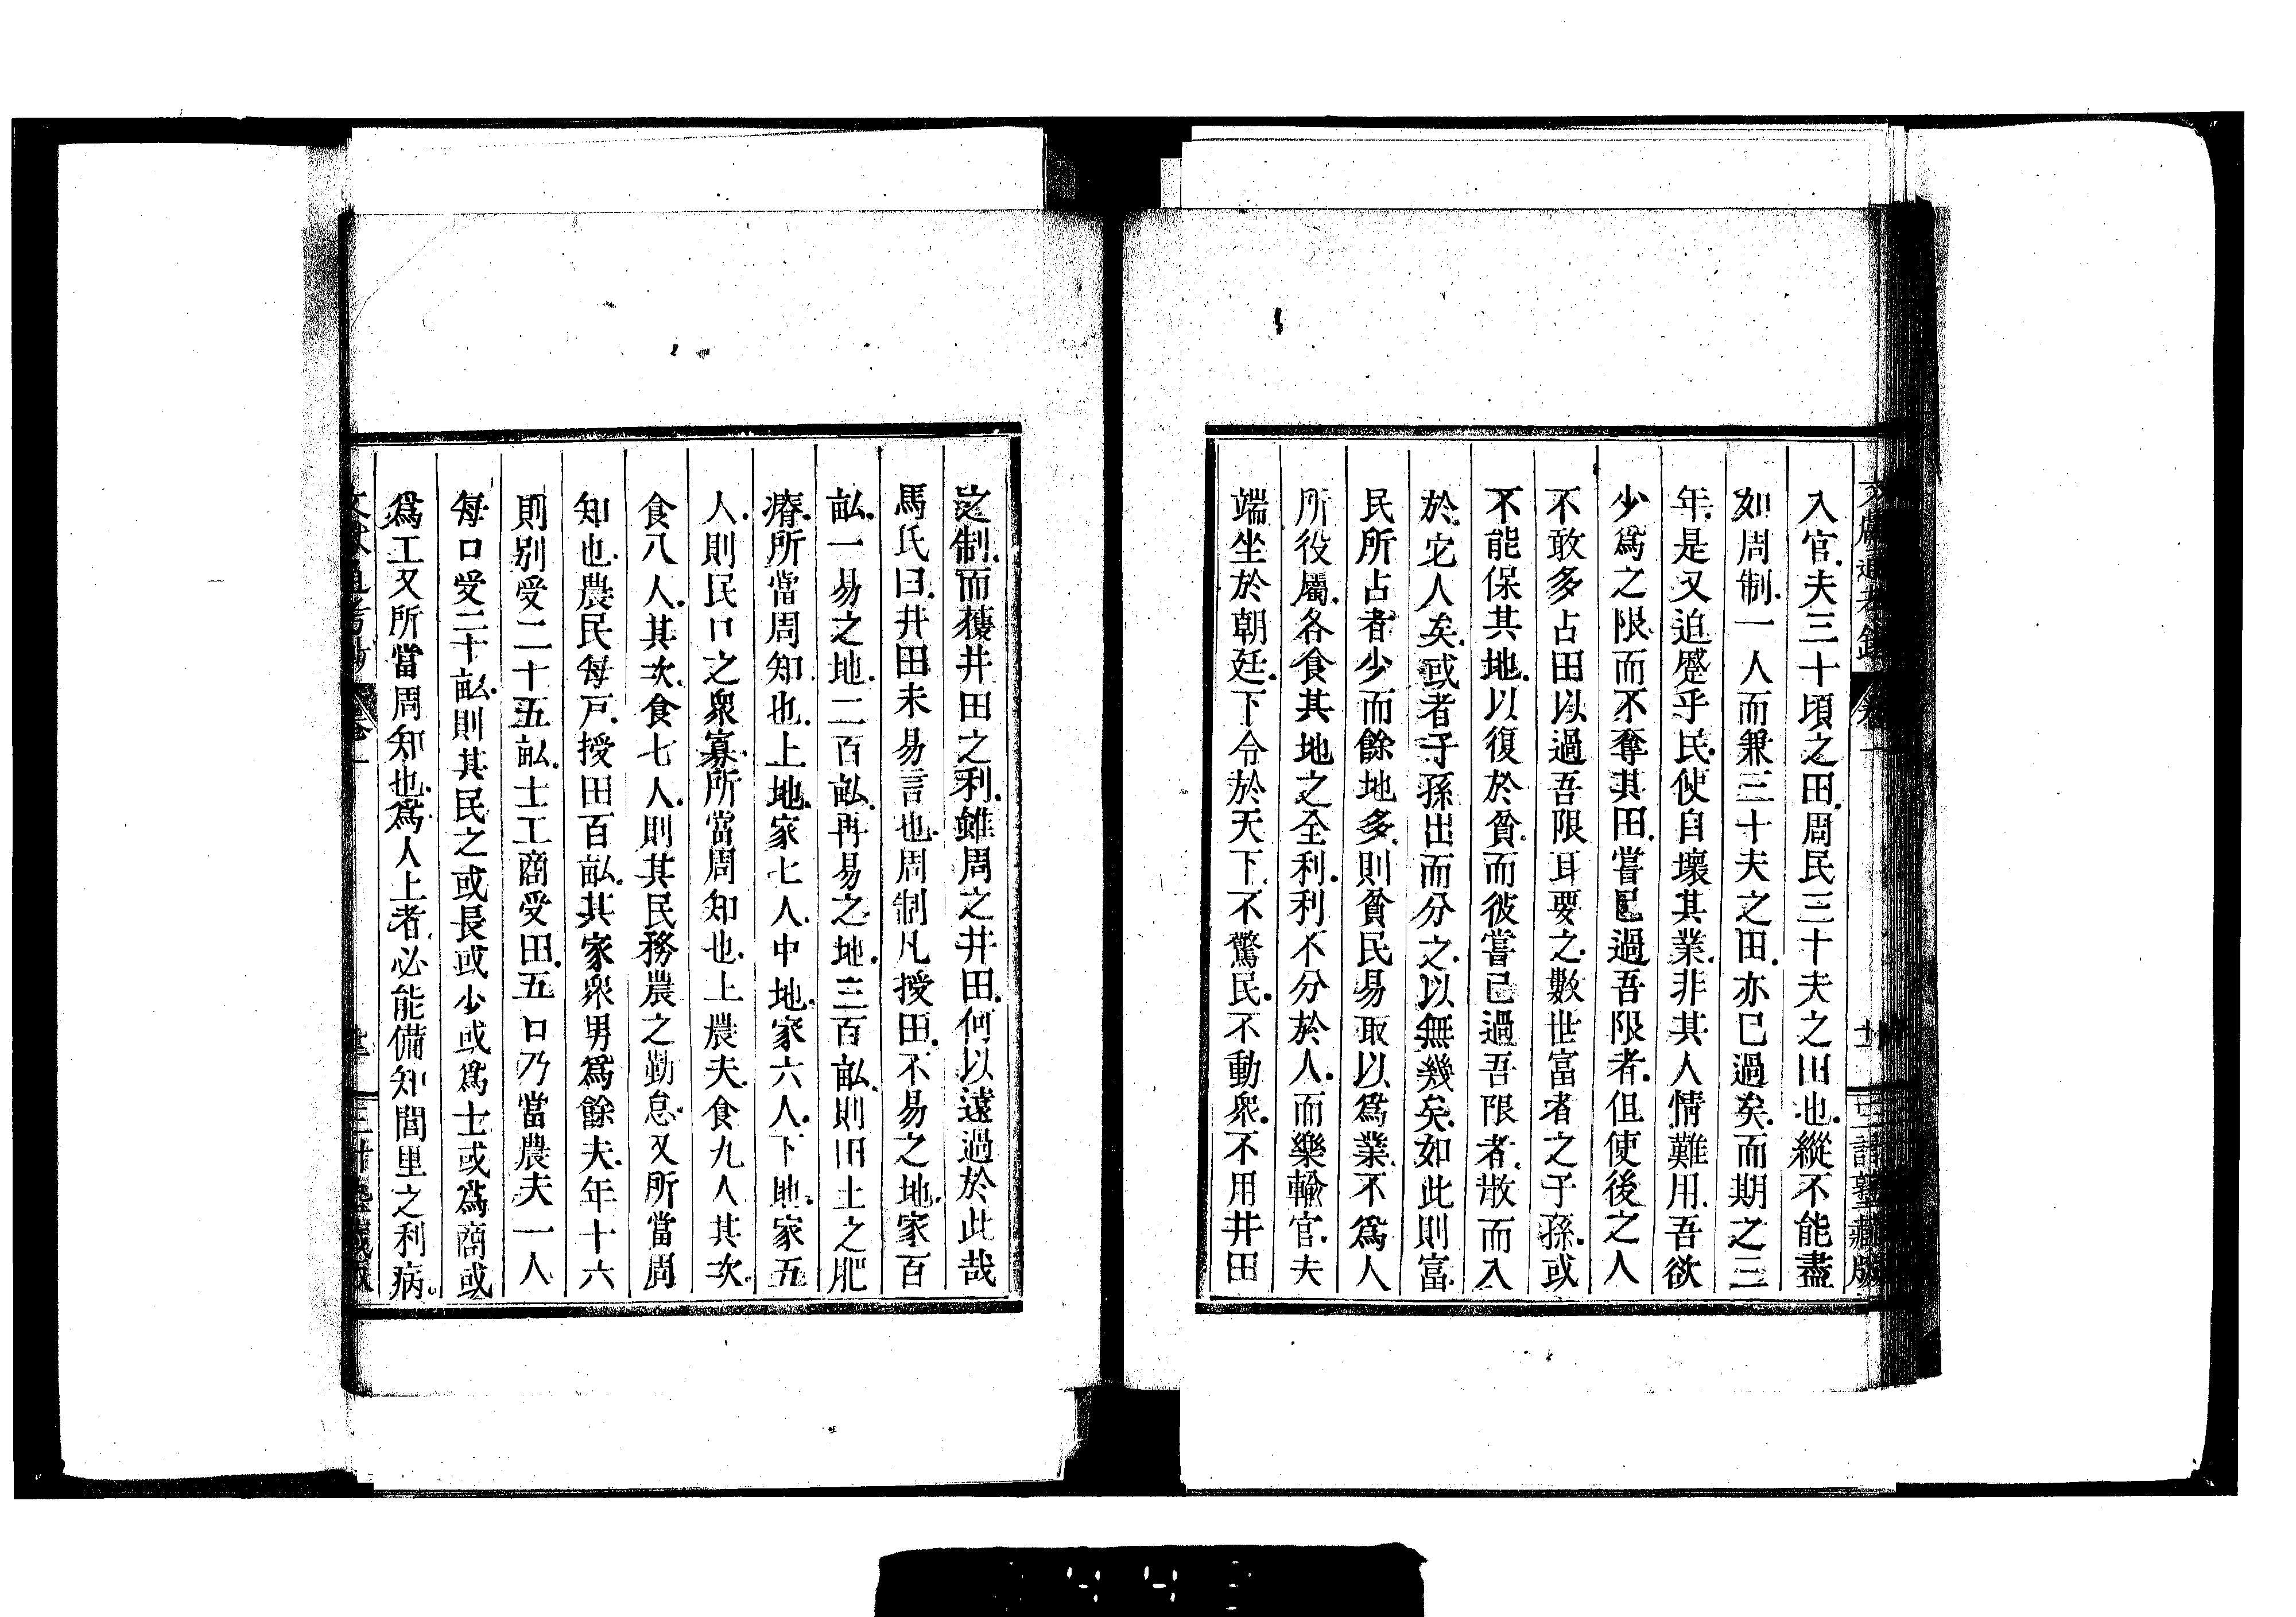 入官夫三十頃之田周民三十夫之田也縱不能盡
如周制一人而兼三十夫之田亦已過矣而期之三
年是又迫蹙乎民使自壞其業非其人情難用吾欲
少爲之限而不奪其田嘗已過吾限者但使後之人
不敢多占田以過吾限耳要之數世富者之子孫或
不能保其地以復於貧而彼嘗已過吾限者散而入
於它人矣或者子孫出而分之以無幾矣如此則富
民所占者少而餘地多則貧民易取以爲業不爲人
所役屬各食其地之全利利不分於人而樂輸官夫
端坐於朝廷下令於天下不驚民不動衆不用井田
之制而獲井田之利雖周之井田何以遠過於此哉
馬氏曰井田未易言也周制凡授田不易之地家百
畝一易之地二百畝再易之地三百畝則田土之肥
瘠所當周知也上地家七人中地家六人下地家五
人則民口之衆寡所當周知也上農夫食九人其次
食八人其次食七人則其民務農之勤怠又所當周
知也農民每戸授田百畝其家衆男爲餘夫年十六
則别受二十五畝士工商受田五口乃當農夫一人
每口受二十畝則其民之或長或少或爲士或爲商或
爲工又所當周知也爲人上者必能備知閭里之利病